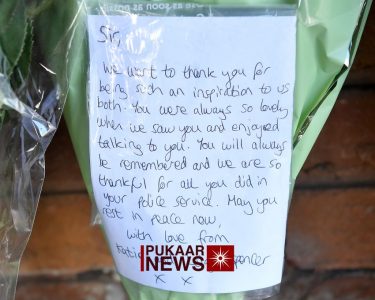 Sir,
We want to thank you for
being such an inspiration to us
both. You were always so lovely
when we saw you and enjoyed
talking to you. You will always
be remembered and we are so
thankful for all you did in
your Police service. May you
rest in peace now,
with love from
Katie
x x
PUKAAR
NEWS